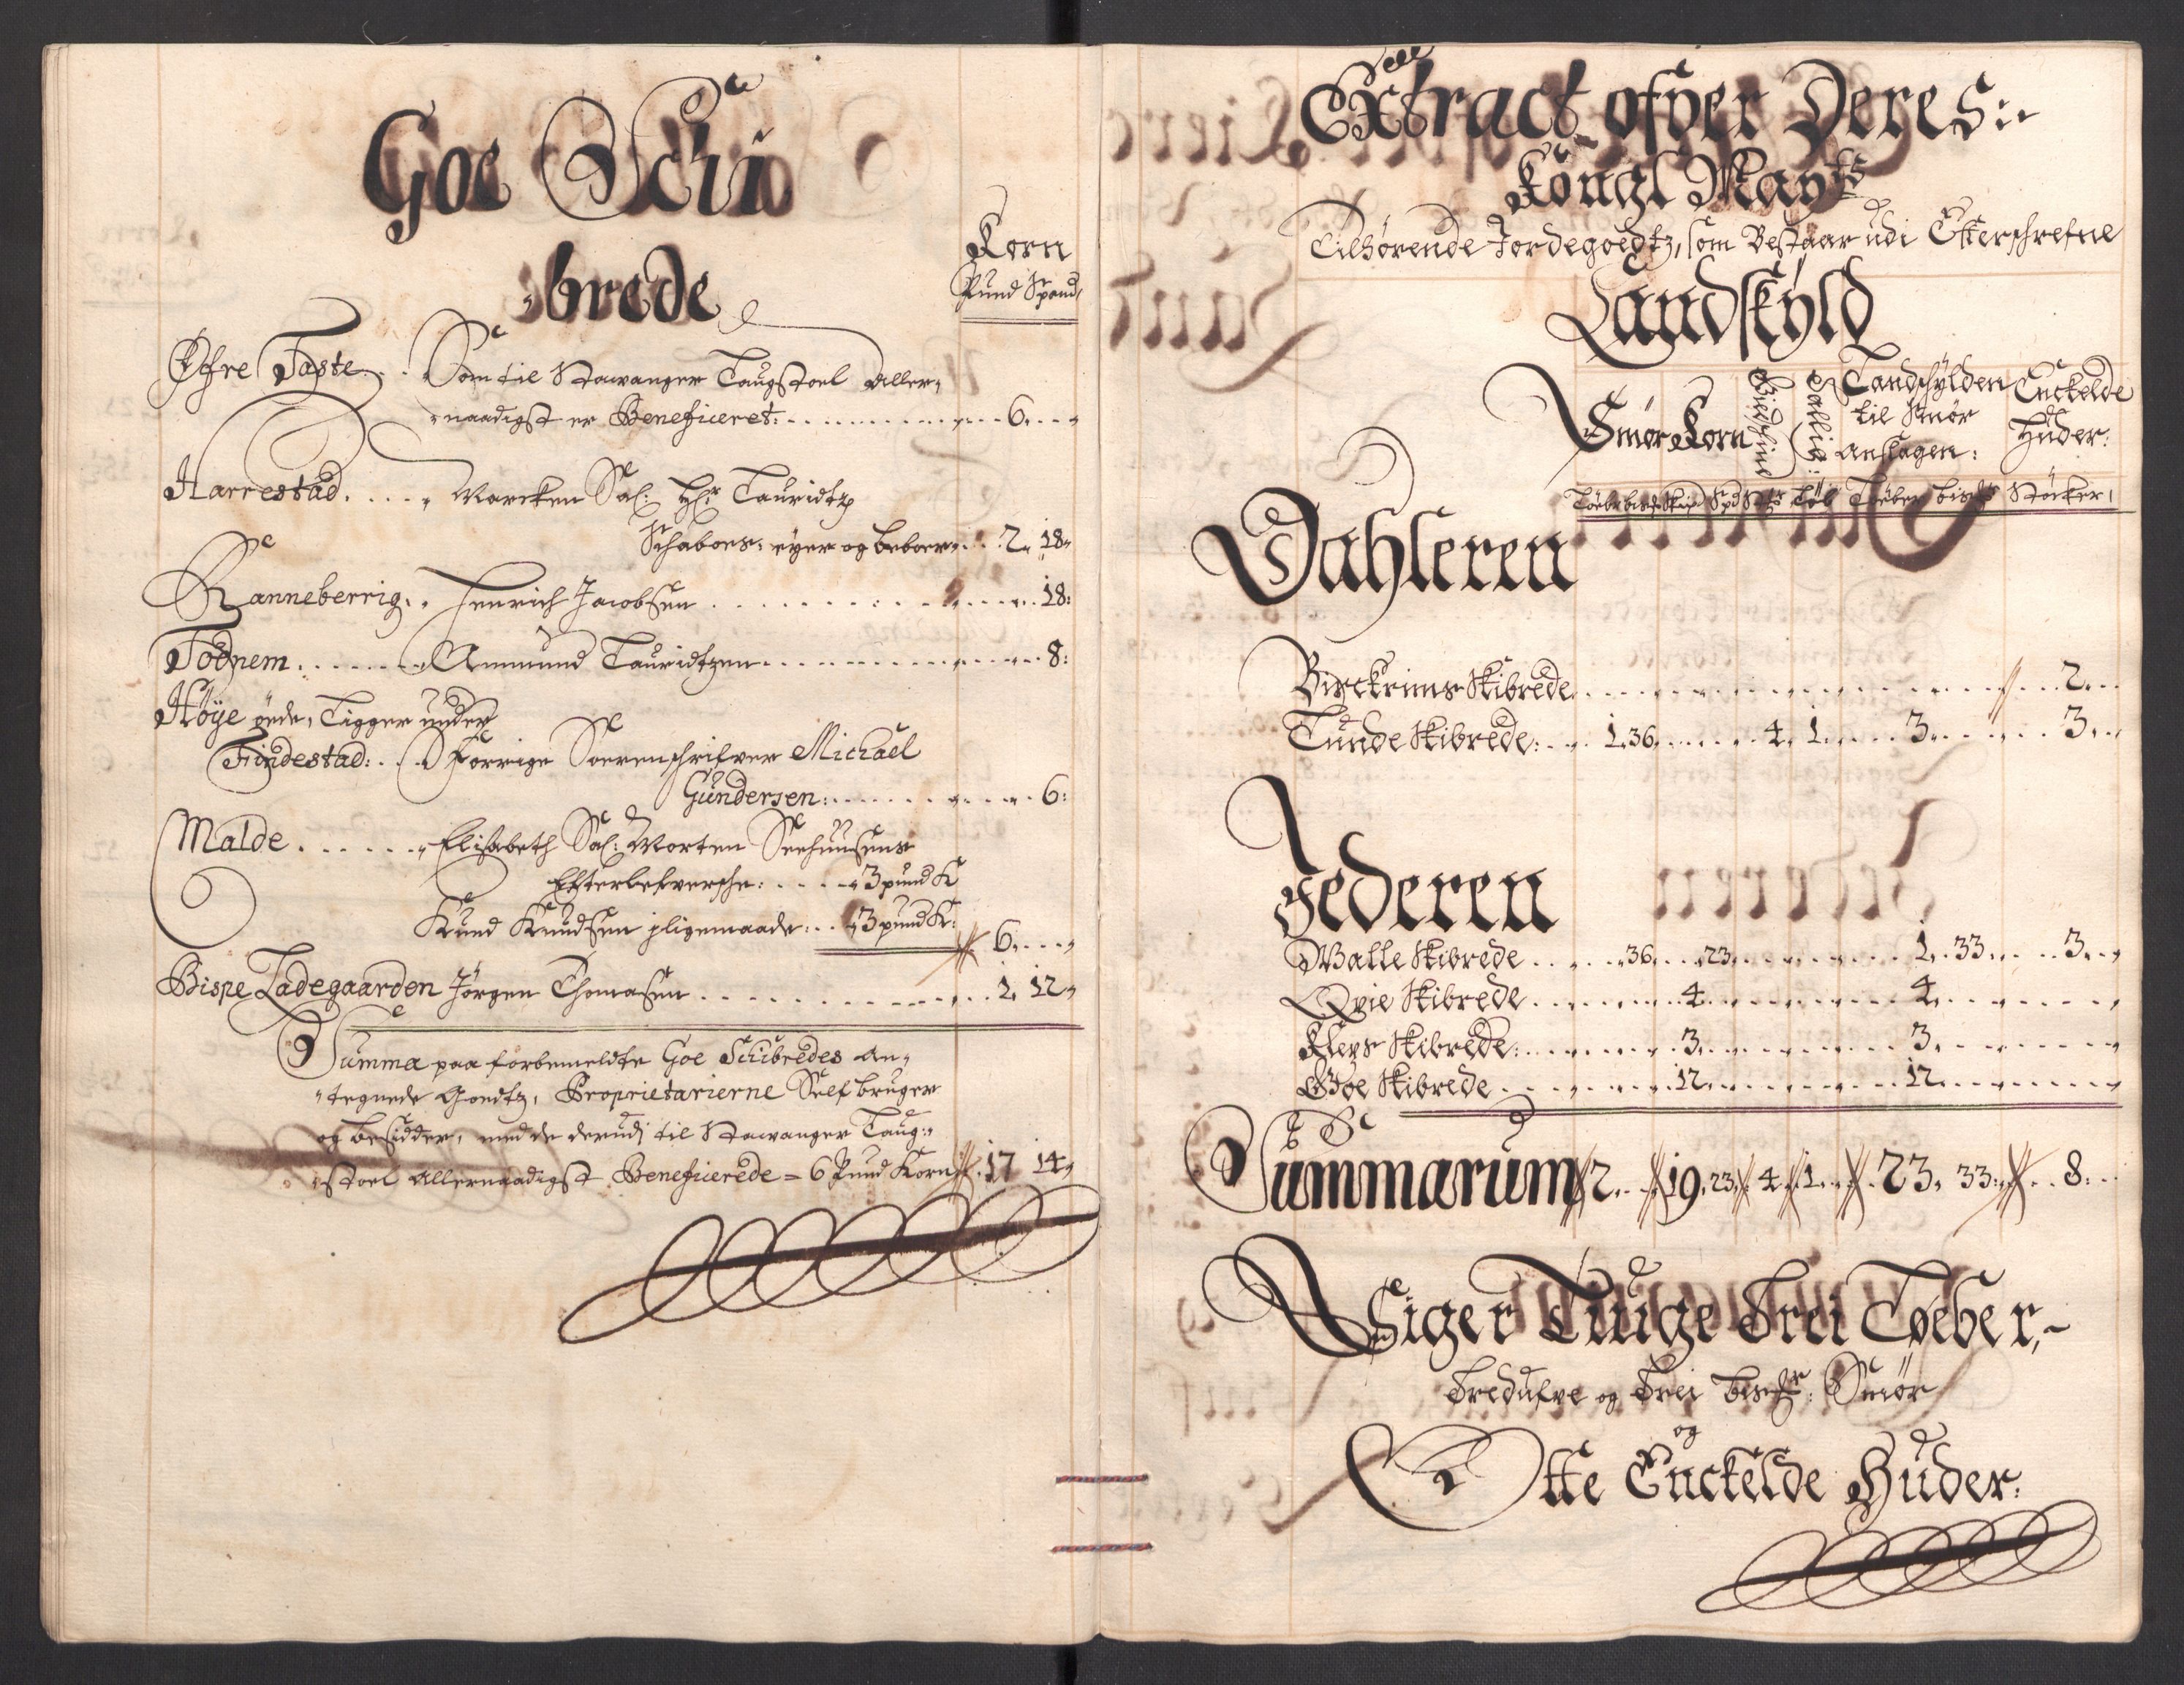 Goe Schi
brede
Korn
Pund Spand
Øfre Taste . . Som til Stavanger Laugstoel Aller„
„naadigst er Beneficeret: . . . . 6. . . „
Harrestad. . . . . „ Marcken Sal: Hr Lauridtz
Schaboes: eyer og beboer: . . 2„ 18„
Ranneberrig. „ Henrich Jacobsen . . . . . . . . 18:
Todnem. . . . . . . Ammund Lauridtzen . . . . . . 8:
Höÿe öede, Ligger under
Findestad: . . Forrige Soerenschrifver Michael
Gundersen: . . . . . . 6:
Malde . . . . . . „ Elisabeth Sal: Morten Seehuusens
Efterlefversche: . . . . „ 3 pund K
Knud Knudsen jligemaade: . . „ 3 pund K: 6. . . . „
Bispe Ladegaarden Jörgen Thomasen . . . . . . . . 1. 12„
Summa paa forbemeldte Goe Schibredes An„
„tegnede Goedtz, Proprietarierne Self bruger
og besidder, med de derudj til Stavanger Laug:„
„stoel Allernaadigst Beneficerede = 6 Pund Korn . 17 14„
Extract ofver Deres:
Kongl Mayts
Tilhørende Jordegoedtz, som Bestaar udi Efterschrefne
Landskÿld
Smör Korn Landschÿlden til Smör Anslagen: Enckelde Huder:
Dahleren
Birckrims Skibrede . . . . . . . . 2. . .
Lunde Skibrede: . . . 1. 36. . . . . . 4. 1. . . . . 3. . . . . . . 3. . „
Jederen
Walle Skibrede . . . . „ 36. . . „ 23. . . . . . . 1. 33. . . . . 3. . „
Qvie Skibrede . . . . . . . 4. . . . . . . . . 4. . . . . . „
Kleps Skibrede: . . . . . . 3. . . . . . . . . 3. . . . . . „
Goe Skibrede . . . . . . . 12. . . . . . . . . 12. . . . . . „
Summarum 2. . . 19. 23. 4. 1. . . 23. 33: . . 8. . .
Siger Tiuge Trei Løeber,
Tredufve og Trei bismr: Smör
og
Otte Enckelde Huder: